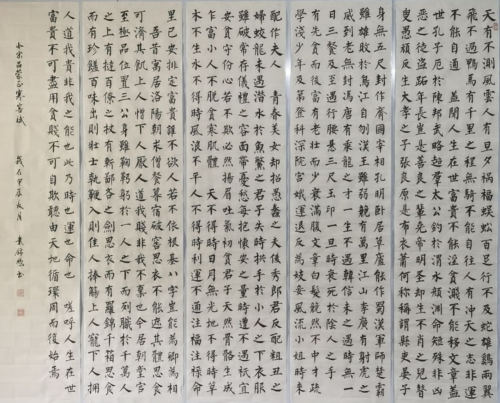 天有不測風雲人有旦夕禍福蜈蚣百足行不及蛇雄雞兩翼
飛不過鴨馬有千里之程無騎不能自往人有沖天之志非運
不能自通 蓋聞人生在世富貴不能淫貧賤不能移文章蓋
世孔子厄於陳邦武略超羣太公釣於渭水顏淵命短殊非凶
惡之徒盜跖年長豈是善良之輩堯帝明聖卻生不肖之兒瞽
叟頑反生大孝之子張良原是布衣蕭何稱謂縣吏晏子
身無五尺封作齊國宰相孔明臥居草廬能作蜀漢軍師楚霸
雖雄敗於烏江自刎漢王雖弱竟有萬里江山李廣有射虎之
威到老無封馮唐有乘龍之才一生不遇韓信未遇之時無一
日三餐及至遇行腰懸三尺玉印一旦時衰死於陰人之手
有先貧而後富有老壯而少衰滿腹文章白髮竟然不中才疏
學淺少年及第登科深院宮娥運退反為妓妾風流小姐時來
配作夫人 青春美女卻招愚蠢之夫俊秀郎君反配粗丑之
婦蛟龍未遇潛水於魚鱉之君子失時拱手於小人之下衣服
雖破常存儀禮之容面帶憂愁每抱懷安之量時遭不遇祇宜
安貧守份心若不欺必然揚眉吐氣初貧君子天然骨骼生成
乍富小人不脫貧寒肌體 天不得時日月無光地不得時草
木不生水不得時風浪不平人不得時利運不通注福注祿命
里已安排定富貴誰不欲人若不依根基八字豈能為卿為相
吾昔寓居洛陽朝求僧餐暮宿破窖思衣不能遮其體思食不
可濟其飢上人憎下人厭人道我賤非我不棄也今居朝堂官
至極品位置三公身雖鞠躬於一人之下而列職於千萬人
之上有撻百僚之杖有斬鄙吝之劍思衣而有羅錦千箱思食
而有珍饈百味出則壯士執鞭入則佳人捧觴上人寵下人擁
人道我貴非我之能也此乃時也運也命也 嗟呼人生在世
富貴不可盡用貧賤不可自欺聽由天地循環周而復始焉
宋呂蒙正寒窖賦 歲在甲辰秋月 袁 書